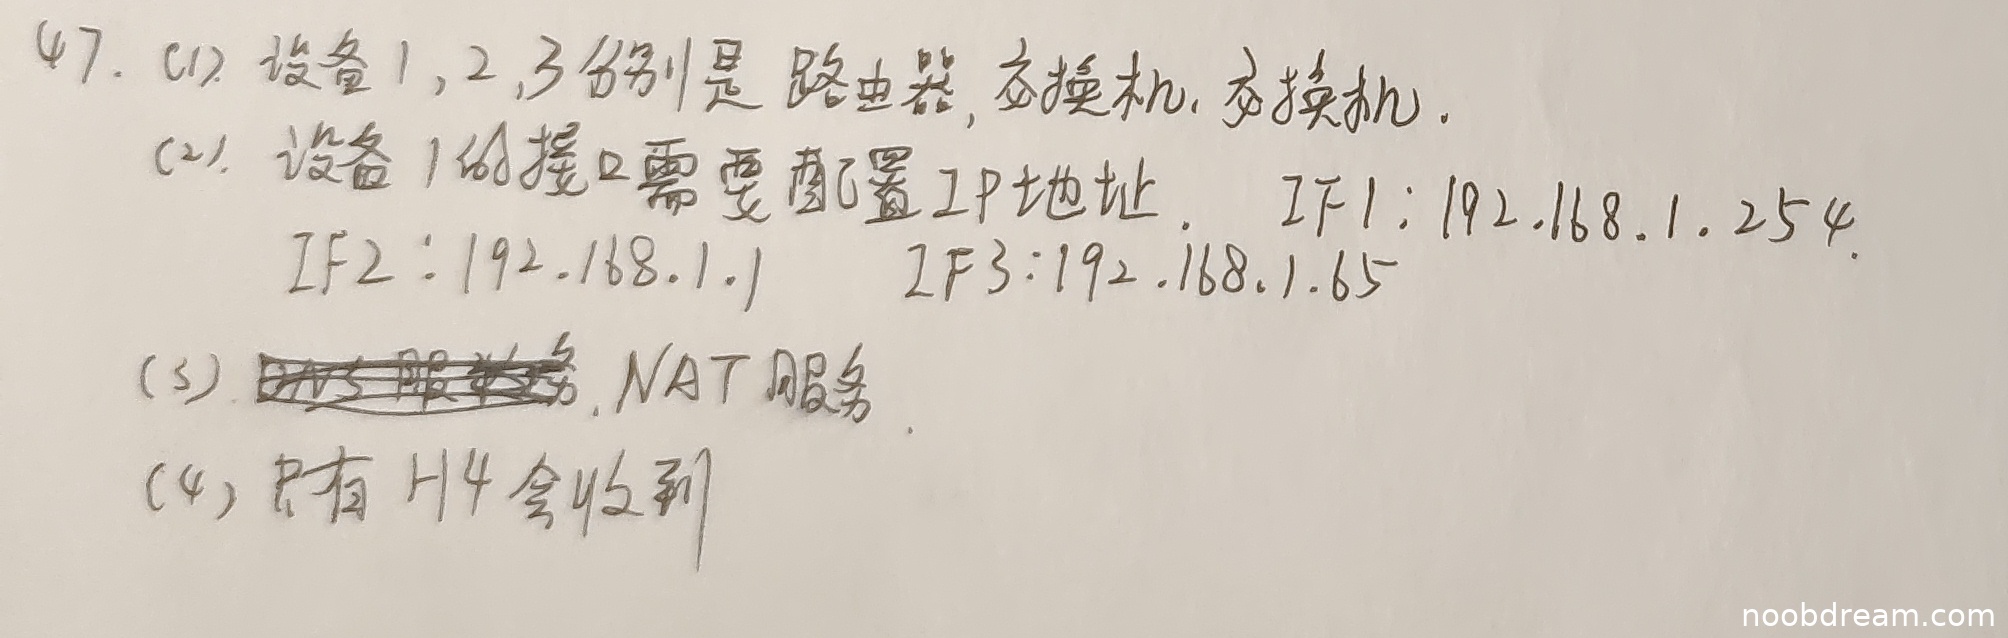 47. (1). 设备1,2,3分别是路由器,交换机,交换机.
(2). 设备1的接口需要配置IP地址. IF1:192.168.1.254.
IF2:192.168.1.1 IF3:192.168.1.65
(3) NAT服务.
(4) 只有H4会收到
noobdream.com